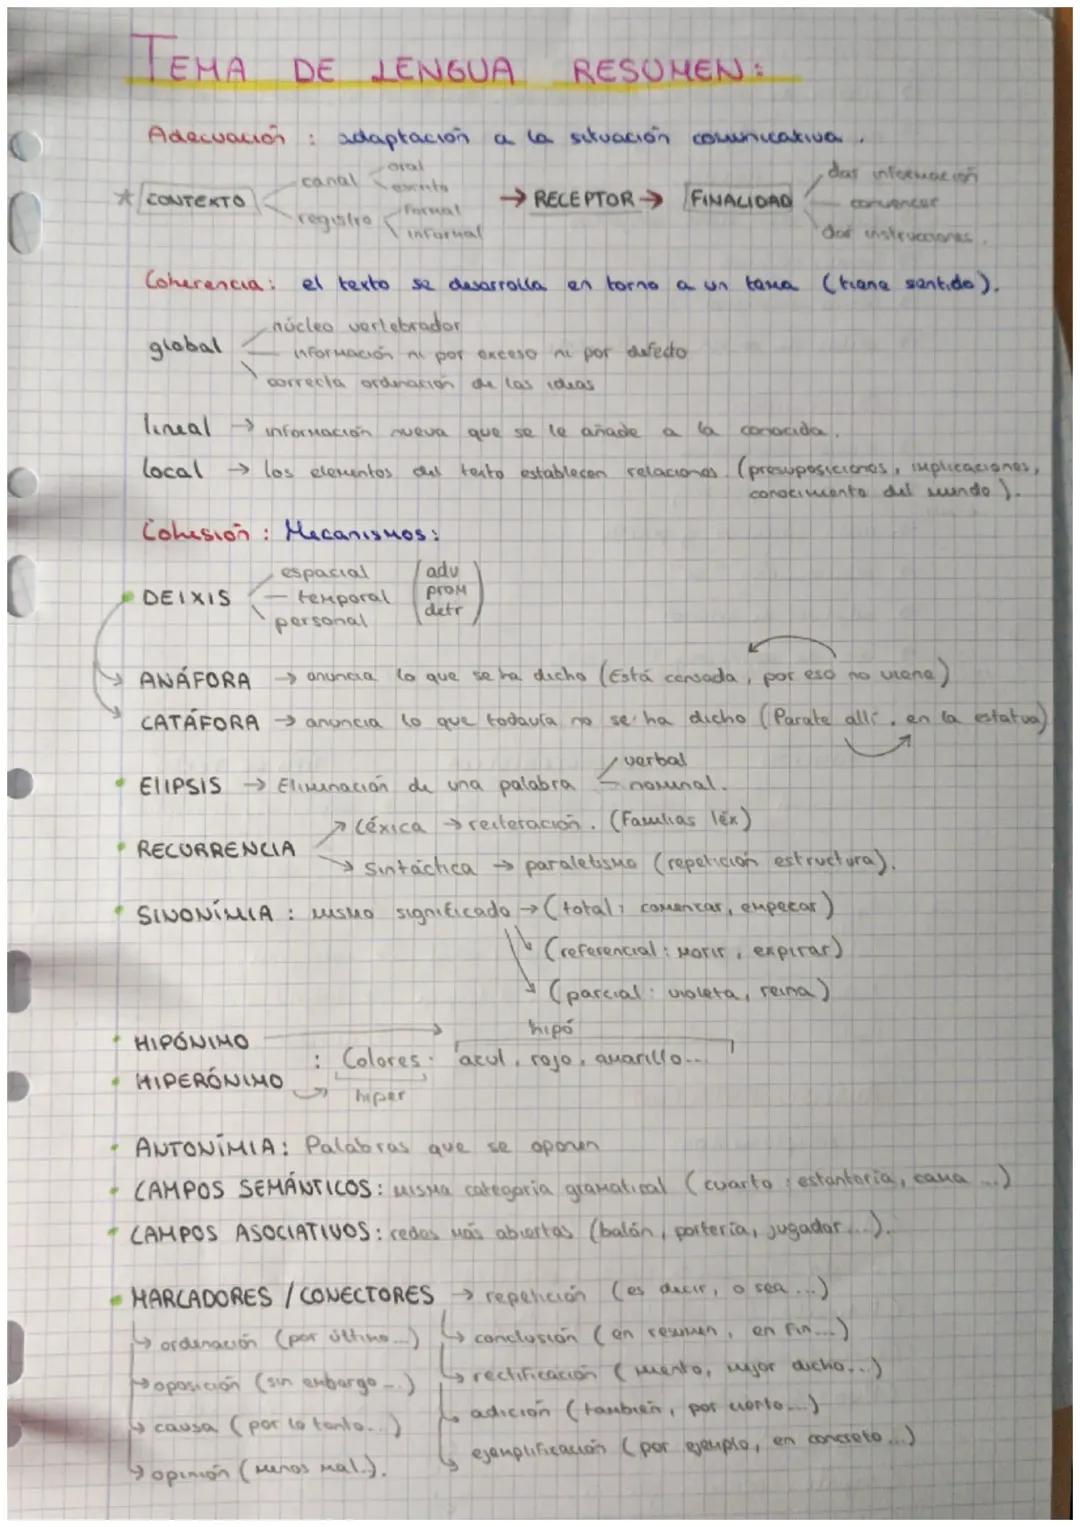 TEMA DE LENGUA RESUMEN:
Adecuación : adaptación a la situación comunicativa.
* CONTEXTO
canal
oral
escrito
registro
formal
informal
→ RECEPTOR → FINALIDAD
dar información
convencer
dar instrucciones.
Coherencia: el texto se desarrolla en torno a un tema (tiene sentido).
global
núcleo vertebrador
información ni por exceso ni por defecto
correcta ordenación de las ideas
lineal → información nueva que se le añade a la conocida.
local → los elementos del texto establecen relaciones (presuposiciones, implicaciones,
conocimiento del mundo).
Cohesión : Mecanismos:
DEIXIS
espacial
temporal
personal
(adv
pron
detr)
ANÁFORA → anuncia lo que se ha dicho (Está cansada, por eso no viene)
CATÁFORA → anuncia lo que todavía no se ha dicho (Parate allí, en la estatua)
ElIPSIS → Eliminación de una palabra
verbal
nominal.
RECURRENCIA
léxica → reiteración. (Familias léx)
sintáctica → paralelismo (repetición estructura).
SINONÍMIA : mismo significado → (total: comenzar, empezar)
(referencial: morir, expirar)
(parcial: violeta, reina)
HIPÓNIMO
HIPERÓNIMO
hipó
: Colores: azul, rojo, amarillo...
hiper
ANTONÍMIA: Palabras que se oponen
CAMPOS SEMÁNTICOS: misma categoría gramatical (cuarto: estantería, cama ...)
CAMPOS ASOCIATIVOS: redes más abiertas (balón, portería, jugador...).
MARCADORES / CONECTORES → repetición (es decir, o sea ...)
↳ ordenación (por último...)
↳ conclusión (en resumen, en fin...)
↳ oposición (sin embargo...)
↳ rectificación (miento, mejor dicho...)
↳ causa (por lo tanto...)
↳ adición (también, por cierto...)
↳ opinión (menos mal.).
↳ ejemplificación (por ejemplo, en concreto...)